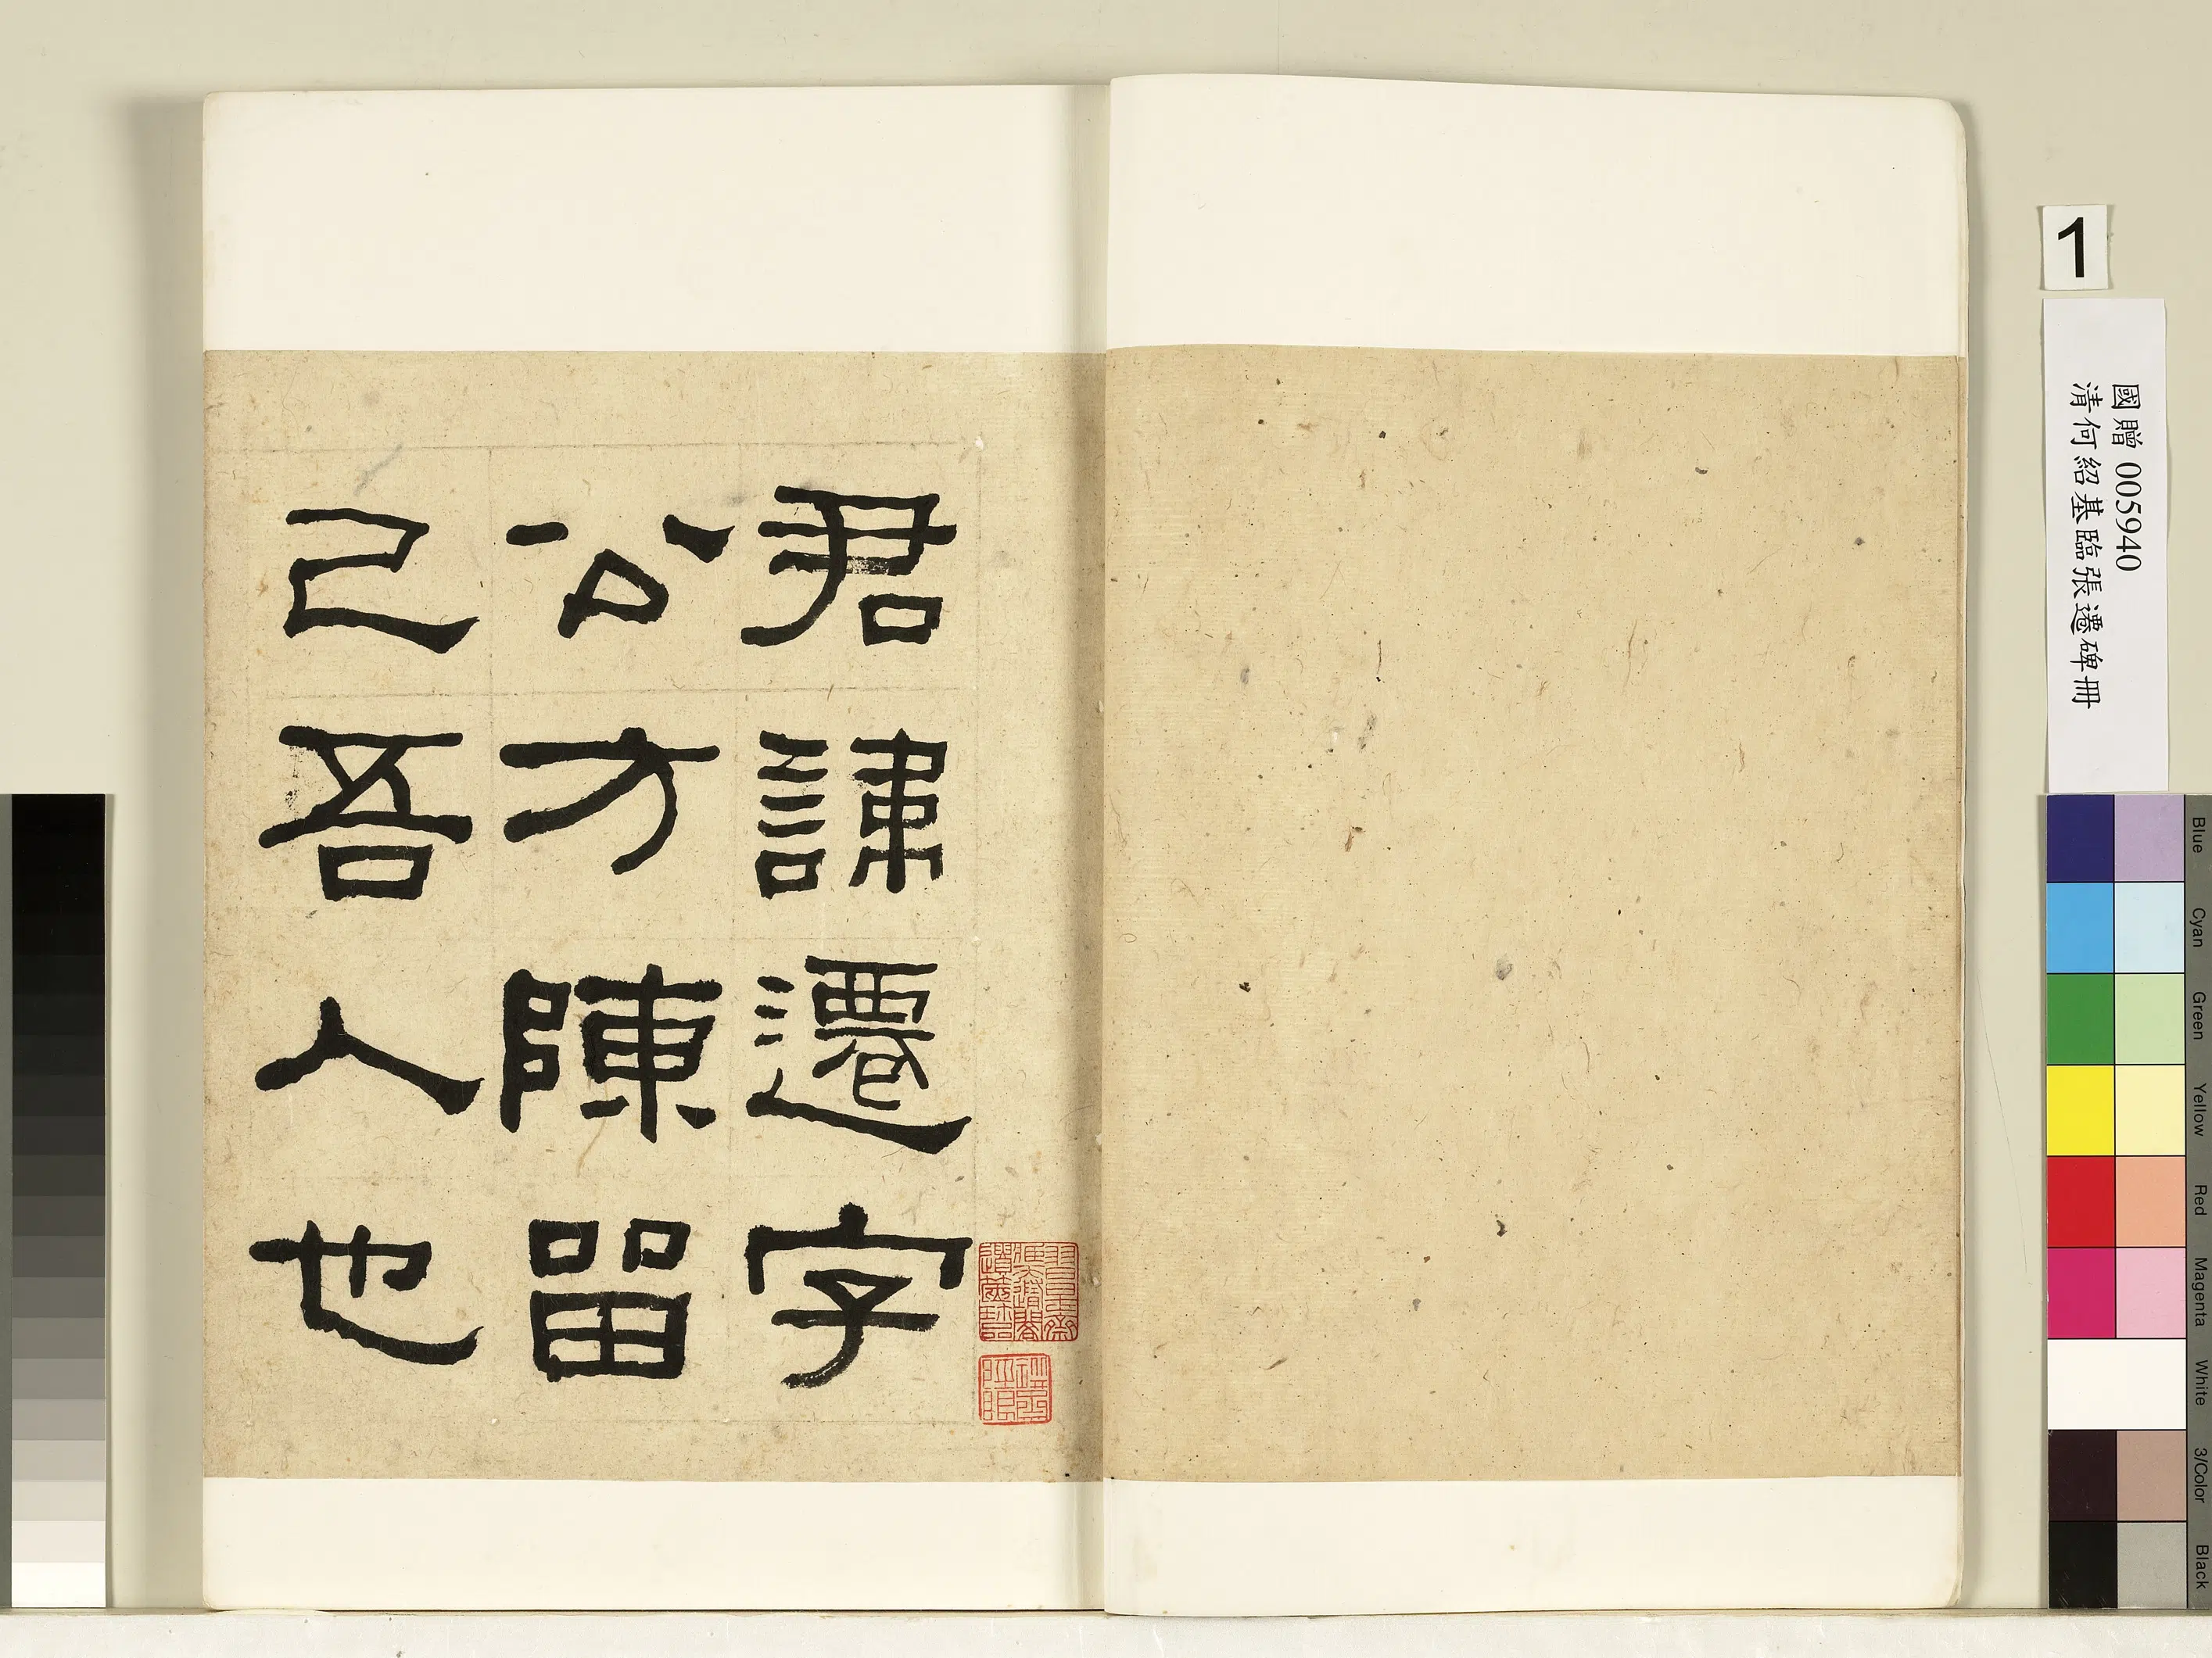 君諱遷字
公方陳留
己吾人也
1
國贈 005940
清何紹基臨張遷碑冊
Blue
Cyan
Green
Yellow
Red
Magenta
White
3/Color
Black